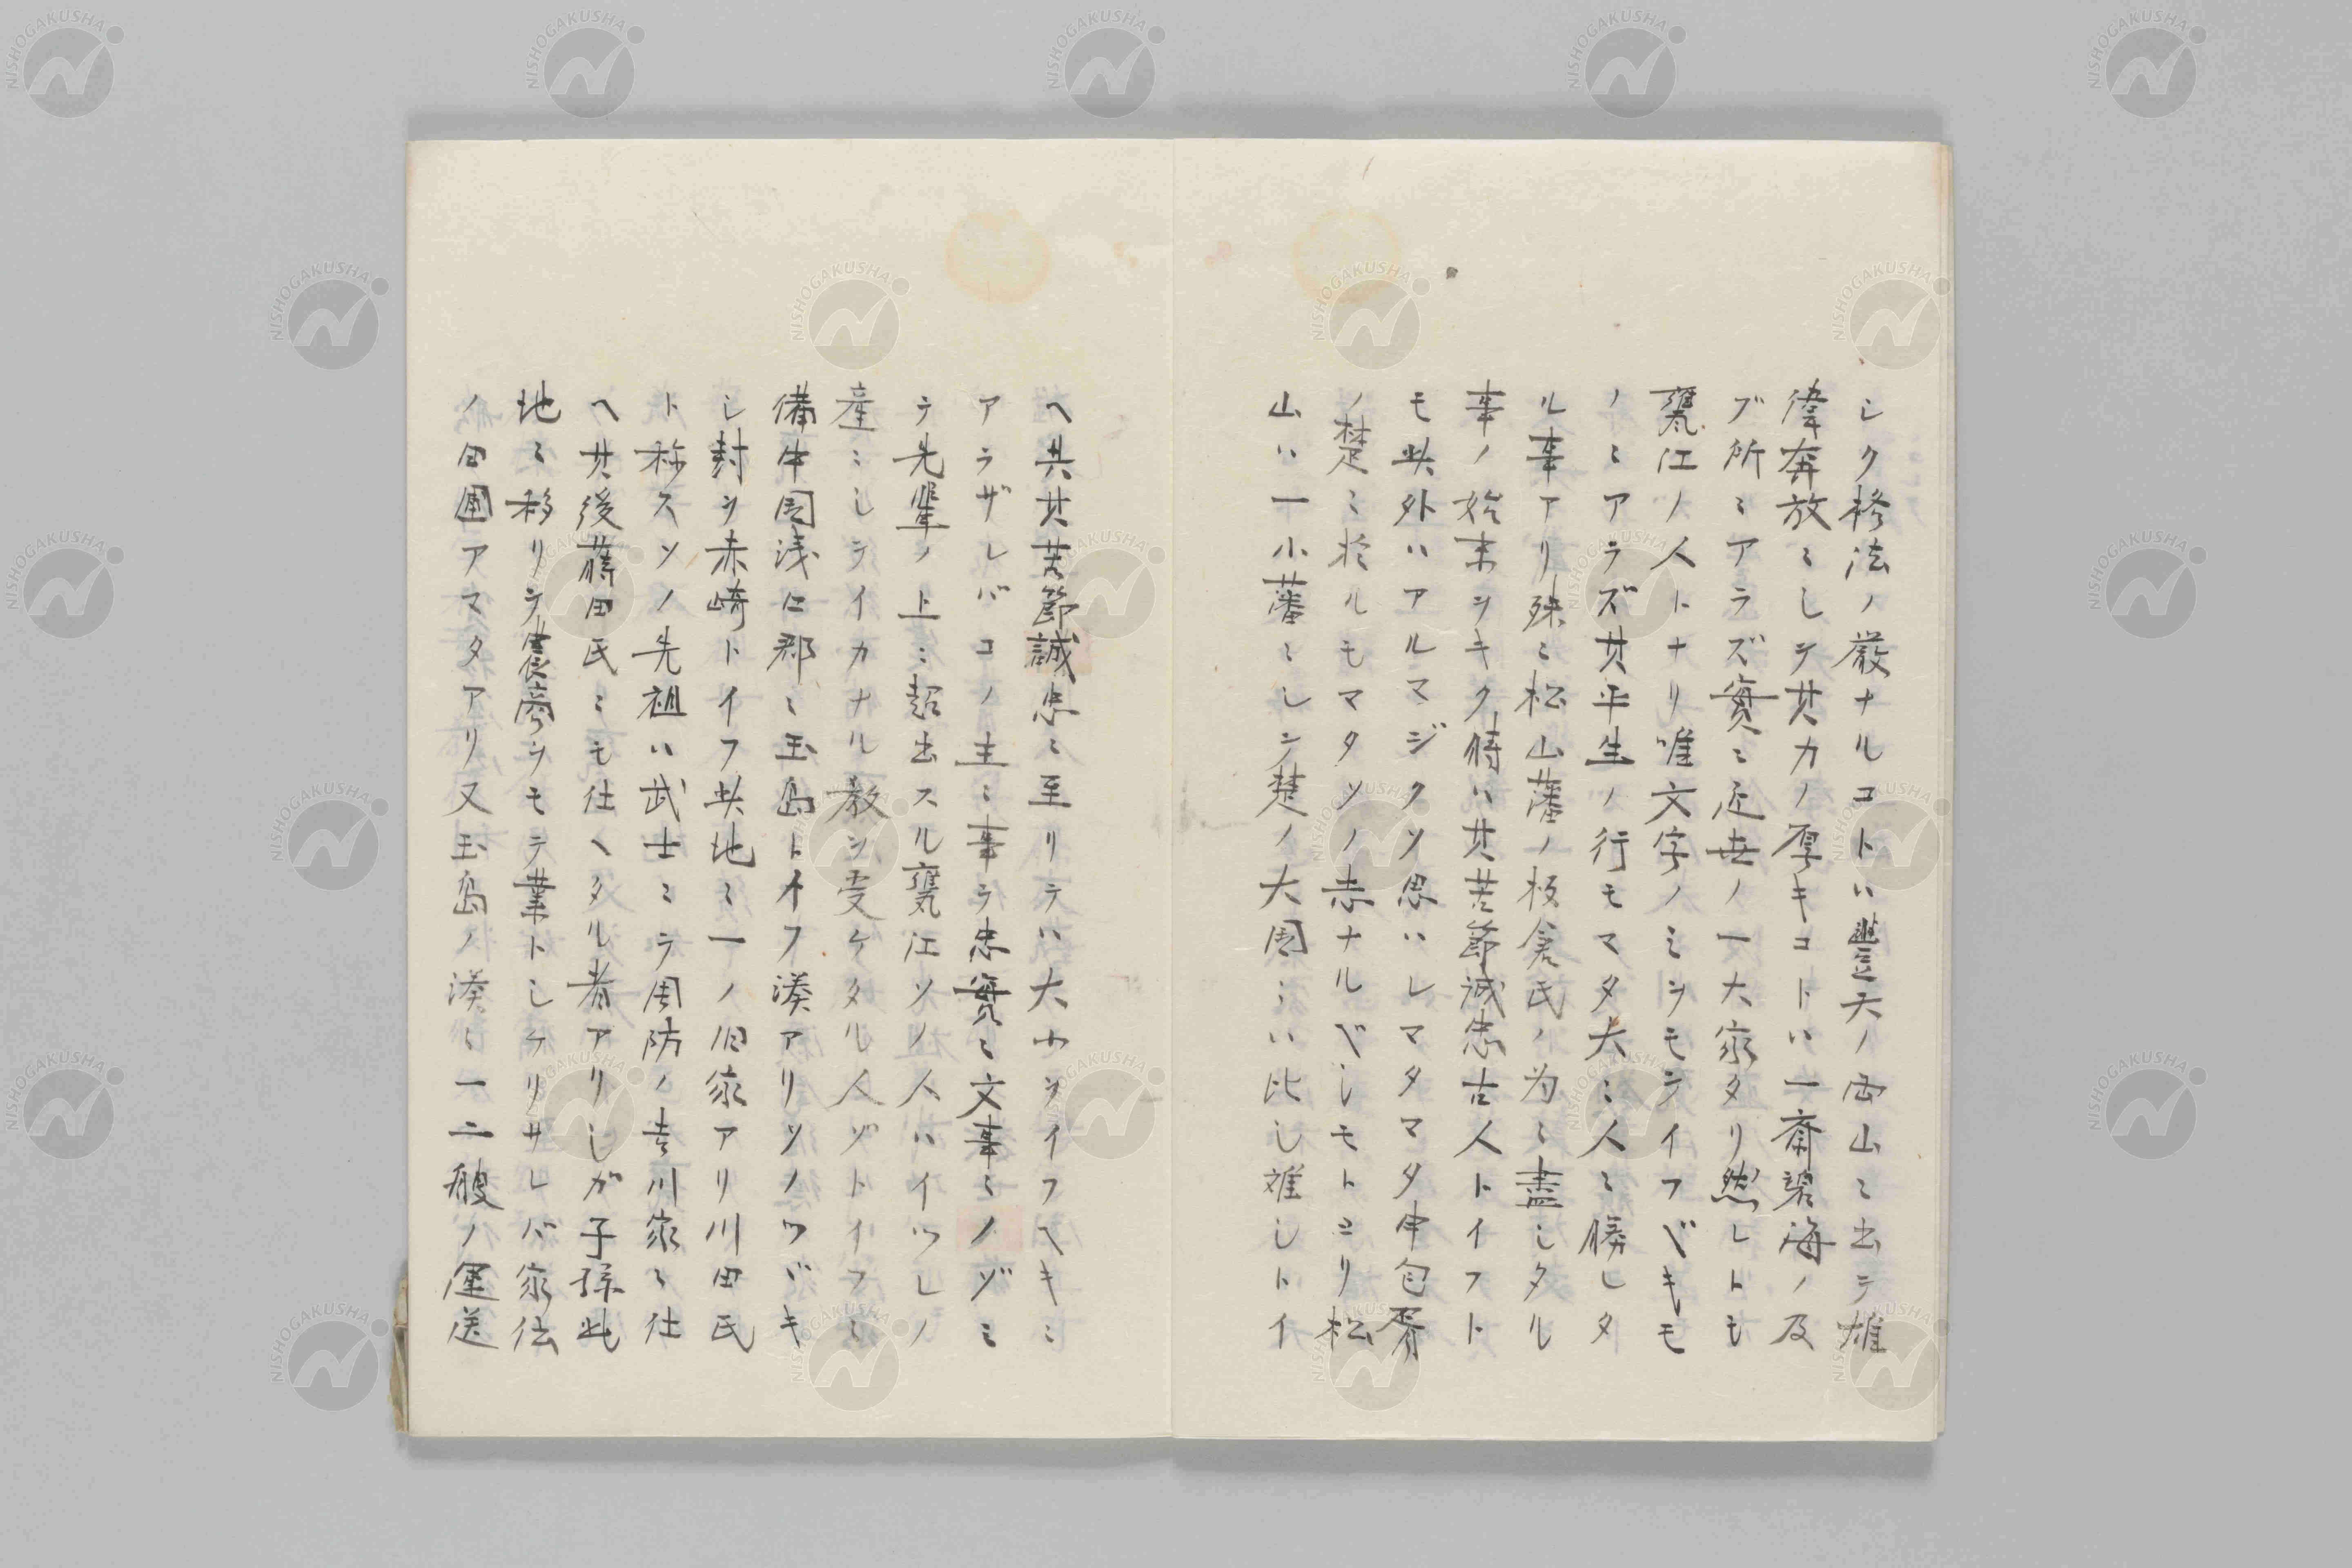 シク格法ノ嚴ナルコトハ豊天ノ両山ニ出テ雄
偉奔放ニシテ其力ノ厚キコトハ一齋碧海ノ及
ブ所ニアラズ實ニ近世ノ一大家タリ然レトモ
甕江ノ人トナリ唯文字ノミヲモテイフベキモ
ノミアラズ其平生ノ行モマタ大ニ人ニ勝レタ
ル事アリ殊ニ松山藩ノ板倉氏ノ為ニ盡シタル
事ノ始末ヲキク時ハ其苦節誠忠古人トイフト
モ此外ハアルマジクソ思ハレマタマタ申包胥
ノ楚ニ於ルモマタソノ志ナルベシモトヨリ松
山ハ一小藩ニシテ楚ノ大国ニハ比シ難シトイ
ヘ共其苦節誠忠ニ至リテハ大小ヲイフヘキニ
アラザレバコノ主ニ事テ忠實ニ文事ニノゾミ
テ先輩ノ上ニ超出スル甕江ソノ人ハイツレノ
産ニシテイカナル教ヲ受ケタル人ゾトイフニ
備中国浅口郡ニ玉島トイフ湊アリソノツヾキ
シ封ヲ赤崎トイフ此地ニ一ノ旧家アリ川田氏
ト称スソノ先祖ハ武士ニテ周防ノ吉川家ニ仕
ヘ其後蒔田氏ニモ仕ヘタル者アリシガ子孫此
地ニ移リテ農商ヲモテ業トシケリサレバ家法
ノ田圃アマタアリ又玉島ノ湊ニ一二艘ノ運送